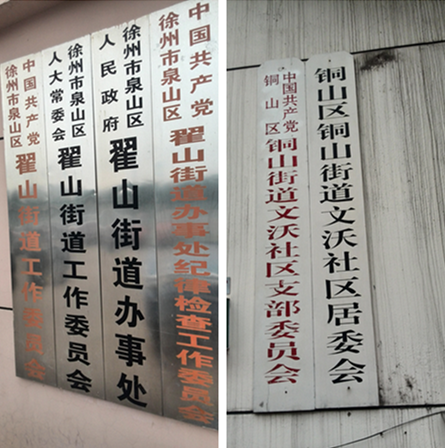 中国共产党
徐州市泉山区
翟山街道工作委员会
徐州市泉山区
人大常委会
翟山街道工作委员会
徐州市泉山区
人民政府
翟山街道办事处
中国共产党
徐州市泉山区
翟山街道办事处纪律检查工作委员会
中国共产党
铜山区
铜山街道文沃社区支部委员会
铜山区铜山街道文沃社区居委会